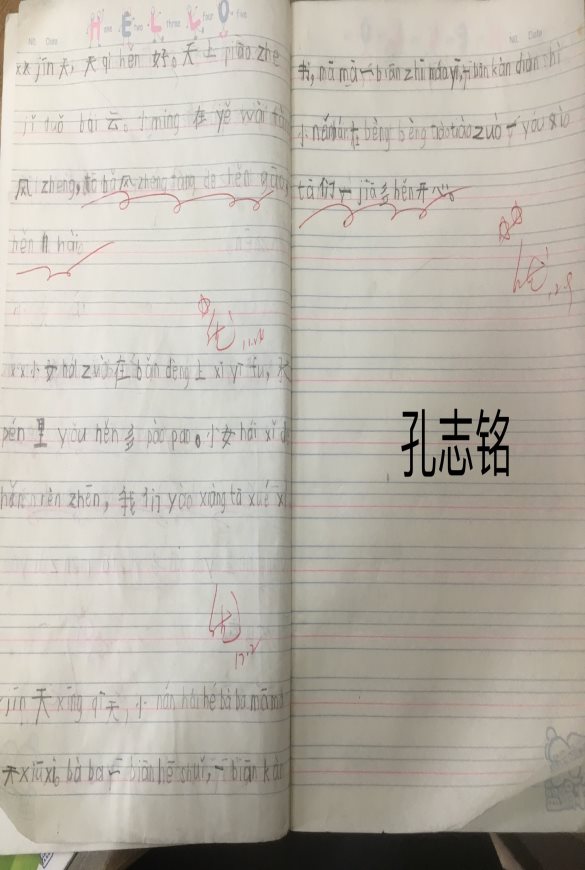 HELLO
one two three four five
No. Date
jīn 天, 天 qì hěn 好。天上 piāo zhe
jǐ duǒ bai 云。小míng 在 yě wài
风zheng, tā bǎ 风zhēng fàng de hěn gāo
hěn
11.24
小女 hái zuò 在 bǎn dèng 上 xǐ yī fu, 水
pén 里 yǒu hěn 多 pào pao。小女 hái xǐ d
hěn rèn zhēn, 我们 yào xiàng tā xué xí
12.2
jīn 天 xīng qī 天, 小 nán hái hé bà ba mā mā
天 xiū xi, bà ba 一 biān hē shuǐ, 一 biān kàn
No. Date
书, mā mā 一 biān zhī máo yī, 一 biān kàn diàn shì
小nán hái 在 bèng bèng tiào tiào zuò 一 yóu xì
tā们一 jiā 多 hěn 开心。
12.9
孔志铭